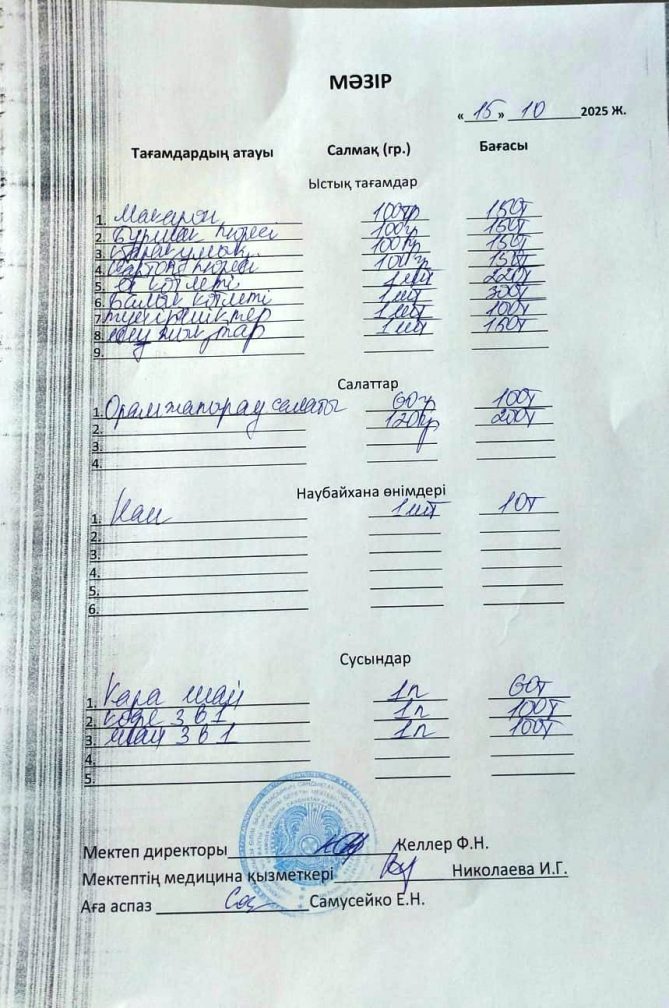 МӘЗІР
« 15 » 10 2025 Ж.
Тағамдардың атауы Салмақ (гр.) Бағасы
Ыстық тағамдар
1. Макарон 100гр 150т
2. Бұршақ пюресі 100гр 150т
3. Қарақұмық 100гр 150т
4. Картоп пюресі 100гр 150т
5. Ет котлеті 1шт 220т
6. Балық котлеті 1шт 300т
7. 1шт 100т
8. 1шт 150т
9.
Салаттар
1. Орамжапырақ салаты 60гр 100т
2. 120гр 200т
3.
4.
Наубайхана өнімдері
1. Нан 1шт 10т
2.
3.
4.
5.
6.
Сусындар
1. Қара шай 1п 60т
2. Кофе 3 в 1 1п 100т
3. Шай 3 в 1 1п 100т
4.
5.
Мектеп директоры Келлер Ф.Н.
Мектептің медицина қызметкері Николаева И.Г.
Аға аспаз Самусейко Е.Н.